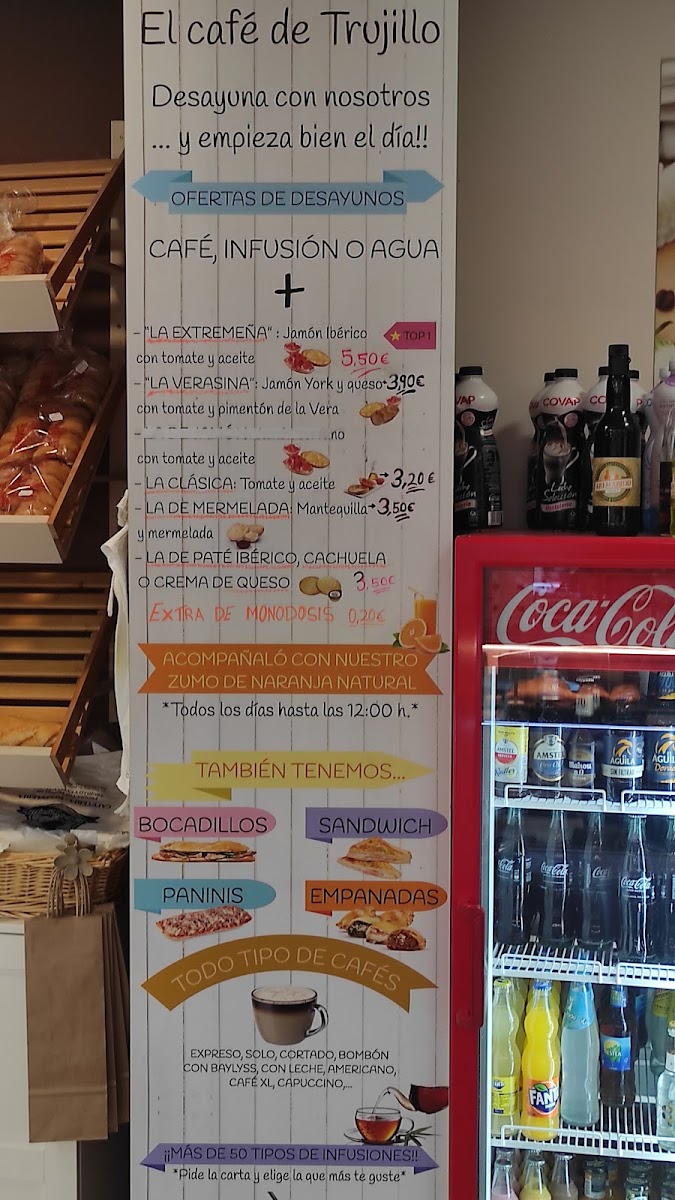 El café de Trujillo
Desayuna con nosotros
... y empieza bien el día!!
OFERTAS DE DESAYUNOS
CAFÉ, INFUSIÓN O AGUA
+
- "LA EXTREMEÑA" : Jamón Ibérico
TOP 1
con tomate y aceite 5,50€
- "LA VERASINA": Jamón York y queso 3,90€
con tomate y pimentón de la Vera
no
con tomate y aceite
- LA CLÁSICA: Tomate y aceite 3,20€
- LA DE MERMELADA: Mantequilla 3,50€
y mermelada
- LA DE PATÉ IBÉRICO, CACHUELA
O CREMA DE QUESO 3,50€
EXTRA DE MONODOSIS 0,20€
ACOMPAÑALÓ CON NUESTRO
ZUMO DE NARANJA NATURAL
*Todos los días hasta las 12:00 h.*
TAMBIÉN TENEMOS...
BOCADILLOS
SANDWICH
PANINIS
EMPANADAS
TODO TIPO DE CAFÉS
EXPRESO, SOLO, CORTADO, BOMBÓN
CON BAYLYSS, CON LECHE, AMERICANO,
CAFÉ XL, CAPUCCINO,...
¡¡MÁS DE 50 TIPOS DE INFUSIONES!!
*Pide la carta y elige la que más te guste*
VAP
COVAP
CO
Coca-Cola
AMSTEL
Radler
AMSTEL
AGUILA
SIN FILTRAR
AGUILA
Coca-Cola
Coca-Cola
Coca-Cola
Coca-Cola
FANTA